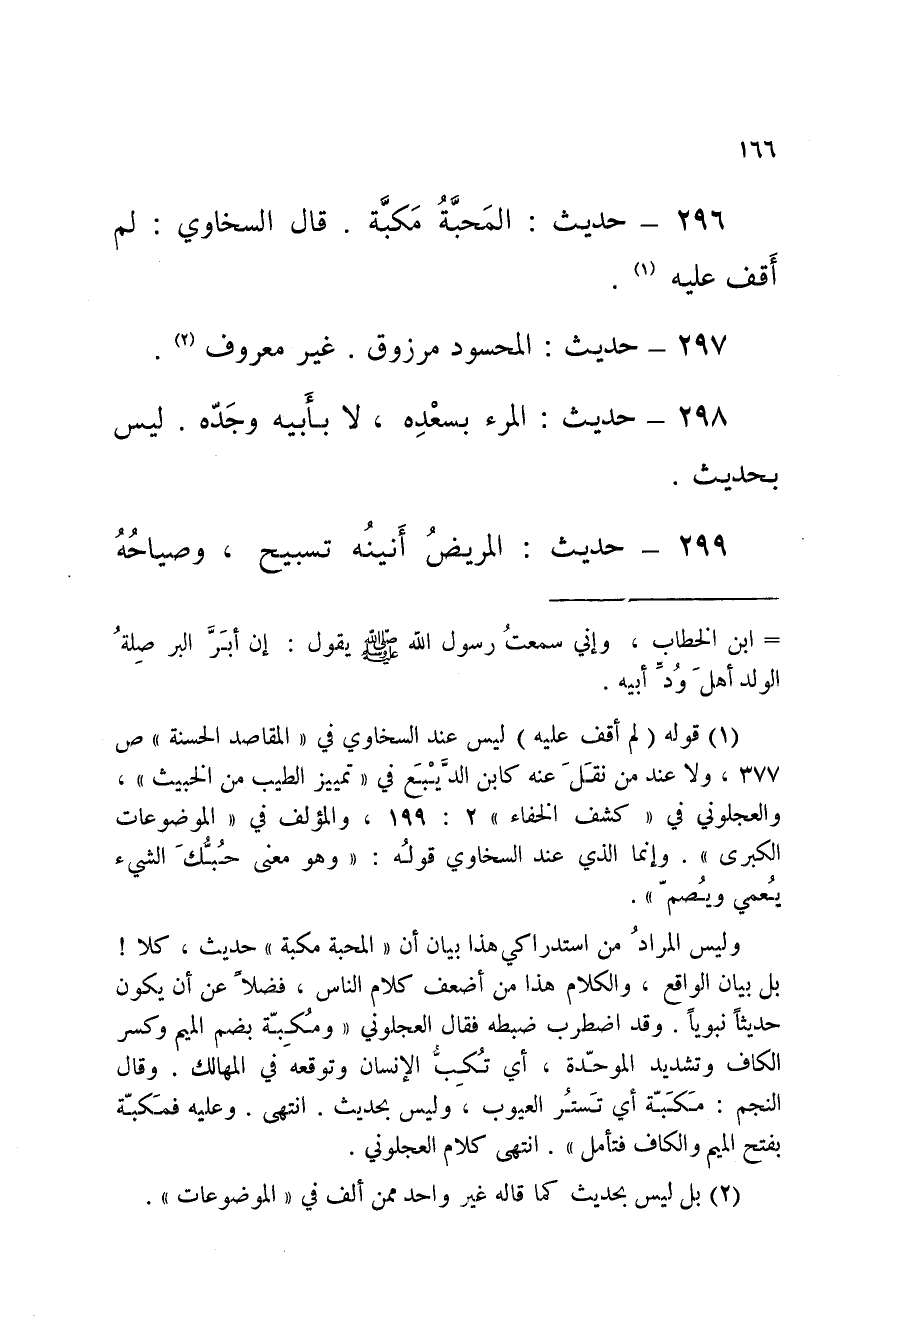 ١٦٦
٢٩٦ – حديث : المَحبَّةُ مَكبَّة . قال السخاوي : لم
أَقف عليه (١) .
٢٩٧ – حديث : المحسود مرزوق . غير معروف (٢) .
٢٩٨ – حديث : المرء بسعْدِه ، لا بأَبيه وجَدّه . ليس
بحديث .
٢٩٩ – حديث : المريضُ أَنينُه تسبيح ، وصياحُهُ
= ابن الخطاب ، وإني سمعتُ رسول الله ﷺ يقول : إن أبَرَّ البر صِلةُ
الولد أهلَ وُدِّ أبيه .
(١) قوله ( لم أقف عليه ) ليس عند السخاوي في « المقاصد الحسنة » ص
٣٧٧ ، ولا عند من نقَلَ عنه كابن الدَّيْبَع في « تمييز الطيب من الخبيث » ،
والعجلوني في « كشف الخفاء » ٢ : ١٩٩ ، والمؤلف في « الموضوعات
الكبرى » . وإنما الذي عند السخاوي قولُه : « وهو معنى حُبُّكَ الشيء
يُعمي ويُصمّ » .
وليس المرادُ من استدراكي هذا بيان أن « المحبة مكبة » حديث ، كلا !
بل بيان الواقع ، والكلام هذا من أضعف كلام الناس ، فضلاً عن أن يكون
حديثاً نبوياً . وقد اضطرب ضبطه فقال العجلوني « ومُكِبّة بضم الميم وكسر
الكاف وتشديد الموحّدة ، أي تُكِبُّ الإنسان وتوقعه في المهالك . وقال
النجم : مَكَبّة أي تَستُر العيوب ، وليس بحديث . انتهى . وعليه فمَكَبّة
بفتح الميم والكاف فتأمل » . انتهى كلام العجلوني .
(٢) بل ليس بحديث كما قاله غير واحد ممن ألف في « الموضوعات » .